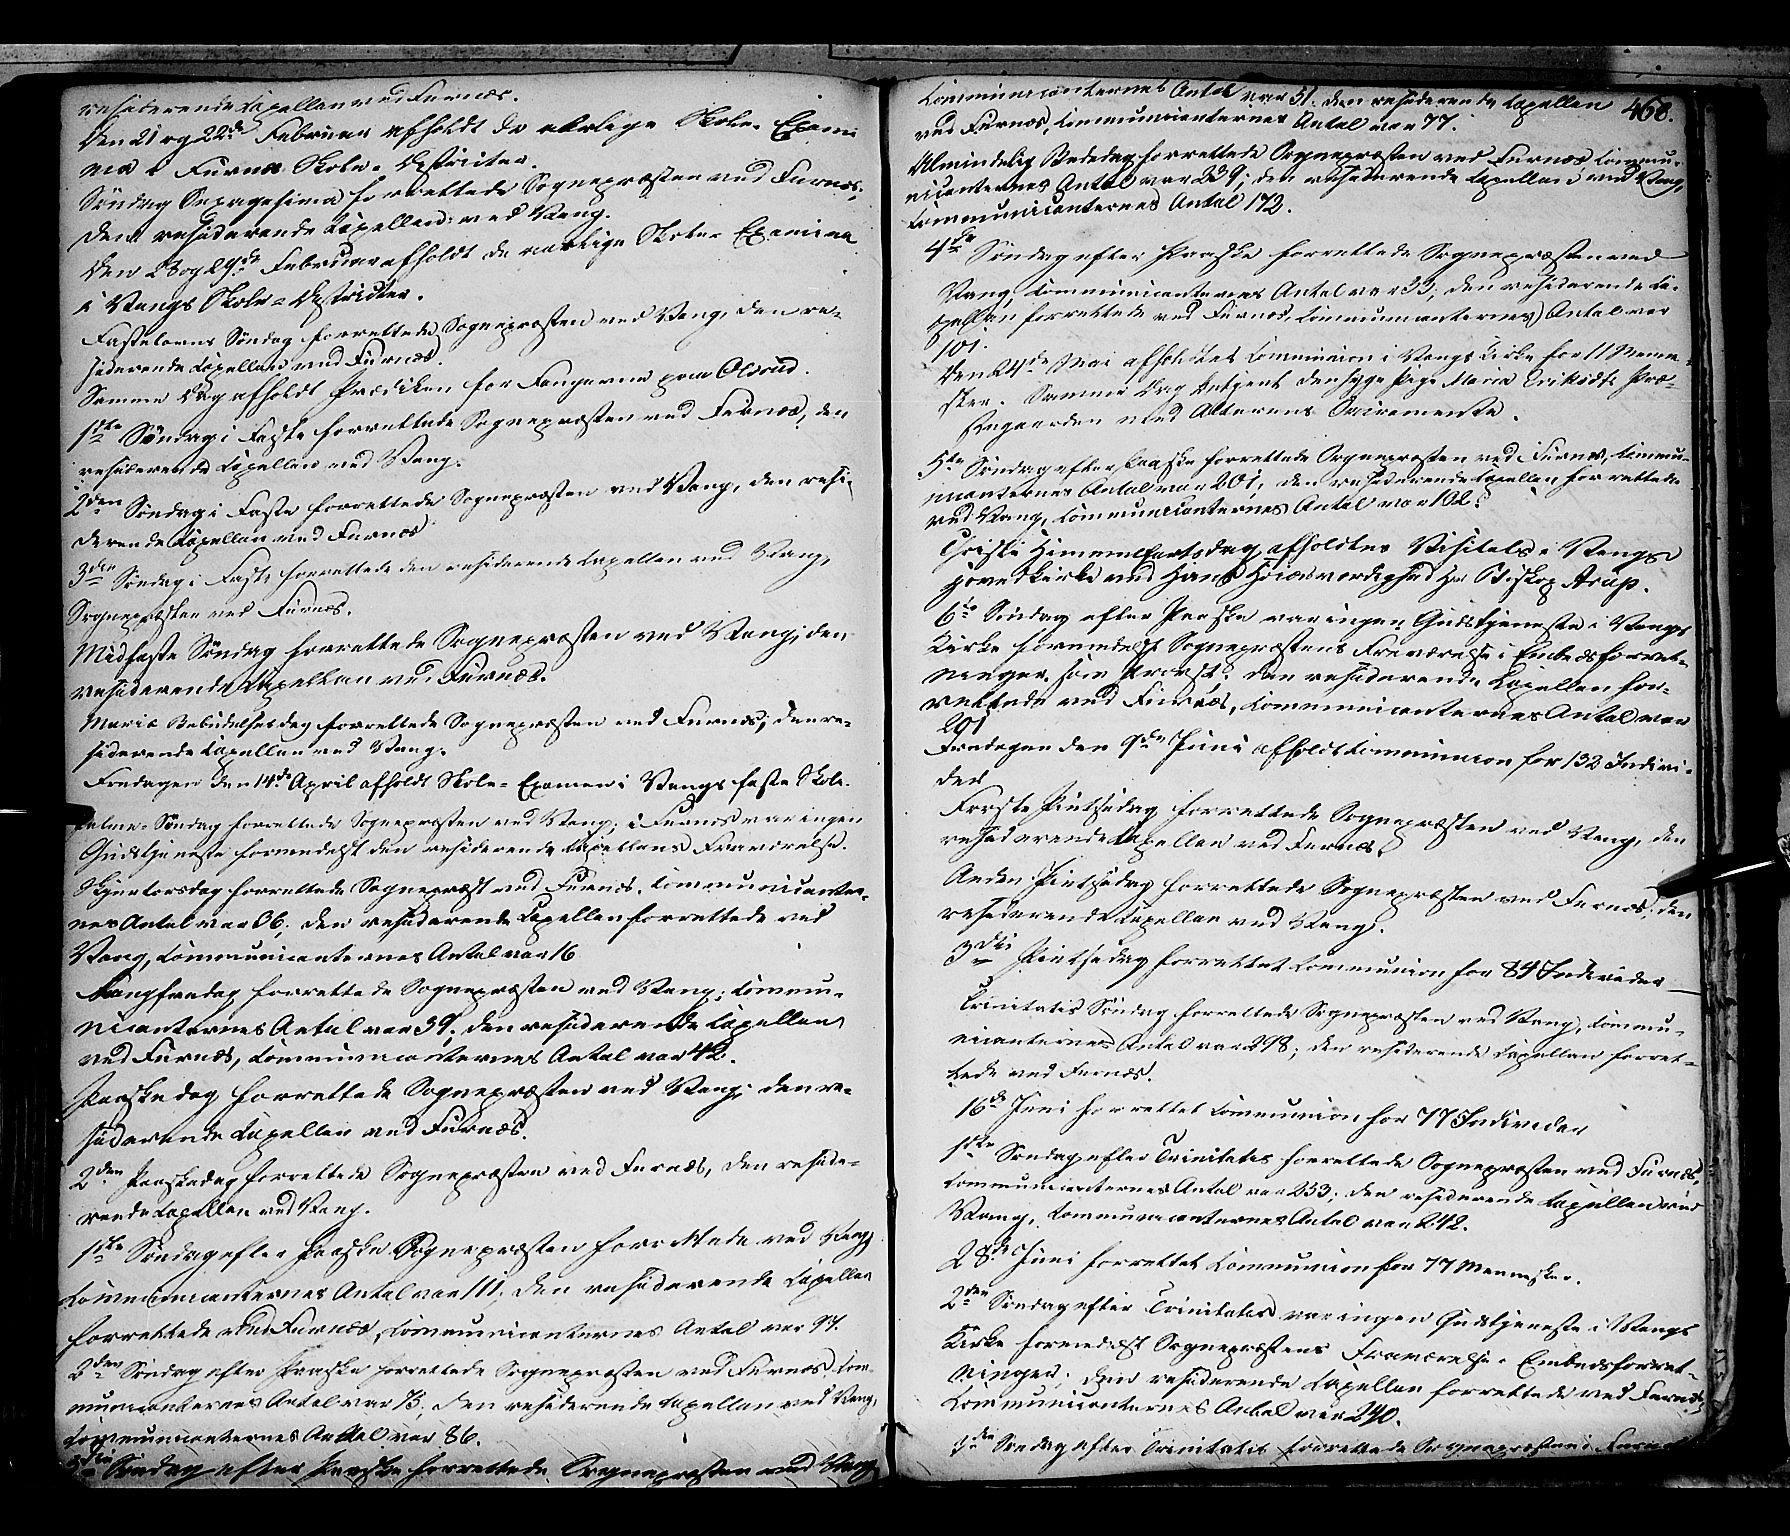 residerende Capellan ved Furnæs.
Den 21 og 22de Februar afholdt de aarlige Skole-Exami
na i Furnæs Skole-Districter.
Søndag Sexagesima forrettede Sognepræsten ved Furnæs.
Den residerende Capellan ved Vang.
Den 28 og 29de Februar afholdt de aarlige Skole-Examina
i Vangs Skole-Districter.
Fastelavns Søndag forrettede Sognepræsten ved Vang, den re-
siderende Capellan ved Furnæs.
Samme Dag afholdt Prædiken for Fangerne paa Olsrud.
1ste Søndag i Faste forrettede Sognepræsten ved Furnæs, den
residerende Capellan ved Vang.
2den Søndag i Faste forrettede Sognepræsten ved Vang, den resi-
derende Capellan ved Furnæs
3die Søndag i Faste forrettede den residerende Capellan ved Vang,
Sognepræsten ved Furnæs.
Midfaste Søndag forrettede Sognepræsten ved Vang, den
residerende Capellan ved Furnæs.
Mariæ Bebudelsesdag forrettede Sognepræsten ved Furnæs; den re-
siderende Capellan ved Vang.
Fredagen den 14de April afholdt Skole-Examen i Vangs faste Skole.
Palme-Søndag forrettede Sognepræsten ved Vang, i Furnæs var ingen
Gudstjeneste formedelst den residerende Capellans Fraværelse.
Skjertorsdag forrettede Sognepræst ved Furnæs, Communicanter-
nes Antal var 86; den residerende Capellan forrettede ved
Vang, Communicanternes Antal var 16
Langfredag forrettede Sognepræsten ved Vang; Commu-
nicanternes Antal var 39; den residerende Capellan
ved Furnæs, Communicanternes Antal var 42.
Paaskedag forrettede Sognepræsten ved Vang; den re-
siderende Capellan ved Furnæs.
2den Paaskedag forrettede Sognepræsten ved Furnæs, den reside-
rende Capellan ved Vang.
1ste Søndag efter Paaske Sognepræsten forrettede ved Vang
Communicanternes Antal var 111; den residerende Capellan
forrettede ved Furnæs, Communicanternes Antal var 97.
2den Søndag efter Paaske forrettede Sognepræsten ved Furnæs, Com-
municanternes Antal var 73; den residerende Capellan ved Vang,
Communicanternes Antal var 86.
3die Søndag efter Paaske forrettede Sognepræsten ved Vang
468.
Communicanternes Antal var 51. den residerende Capellan
ved Furnæs, Communicanternes Antal var 77.
Almindelig Bededag forrettede Sognepræsten ved Furnæs Commu-
nicanternes Antal var 239; den residerende Capellan ved Vang,
Communicanternes Antal 172.
4de Søndag efter Paaske forrettede Sognepræsten ved
Vang, Communicanternes Antal var 33; den residerende Ca-
pellan forrettede ved Furnæs, Communicanternes Antal var
101.
Den 24de Mai afholdtes Communion i Vangs Kirke for 11 Menne-
sker. Samme Dag betjent den syge Pige Maria Eriksdt. Præ-
stegaarden med Alterens Sacramente.
5te Søndag efter Paaske forrettede Sognepræsten ved Furnæs, Commu-
nicanternes Antal var 201; den residerende Capellan forrettede
ved Vang, Communicanternes Antal var 102.
Christi Himmelfartsdag afholdtes Visitats i Vangs
Hovedkirke ved Hans Høiærværdighed Hr Biskop Arup.
6te Søndag efter Paaske var ingen Gudstjeneste i Vangs
Kirke formedelst Sognepræstens Fraværelse i Embedsforret-
ninger som Provst. Den residerende Capellan for-
rettede ved Furnæs, Communicanternes Antal var
291
Fredagen den 9de Juni afholdt Communion for 132 Indivi-
der
Første Pintsedag forrettede Sognepræsten ved Vang, den
residerende Capellan ved Furnæs.
Anden Pintsedag forrettede Sognepræsten ved Furnæs, den
residerende Capellan ved Vang.
3die Pintsedag forrettet Communion for 84 Individer
Trinitatis Søndag forrettede Sognepræsten ved Vang, Commu-
nicanternes Antal var 298; den residerende Capellan forret-
tede ved Furnæs.
16de Juni forrettet Communion for 77 Individer
1ste Søndag efter Trinitatis forrettede Sognepræsten ved Furnæs,
Communicanternes Antal var 233; den residerende Capellan ved
Vang, Communicanternes Antal var 242.
28de Juni forrettet Communion for 77 Mennesker.
2den Søndag efter Trinitatis var ingen Gudstjeneste i Vangs
Kirke formedelst Sognepræstens Fraværelse i Embedsforret-
ninger; den residerende Capellan forrettede ved Furnæs,
Communicanternes Antal var 240.
3die Søndag efter Trinitatis forrettede Sognepræsten i Furnæs